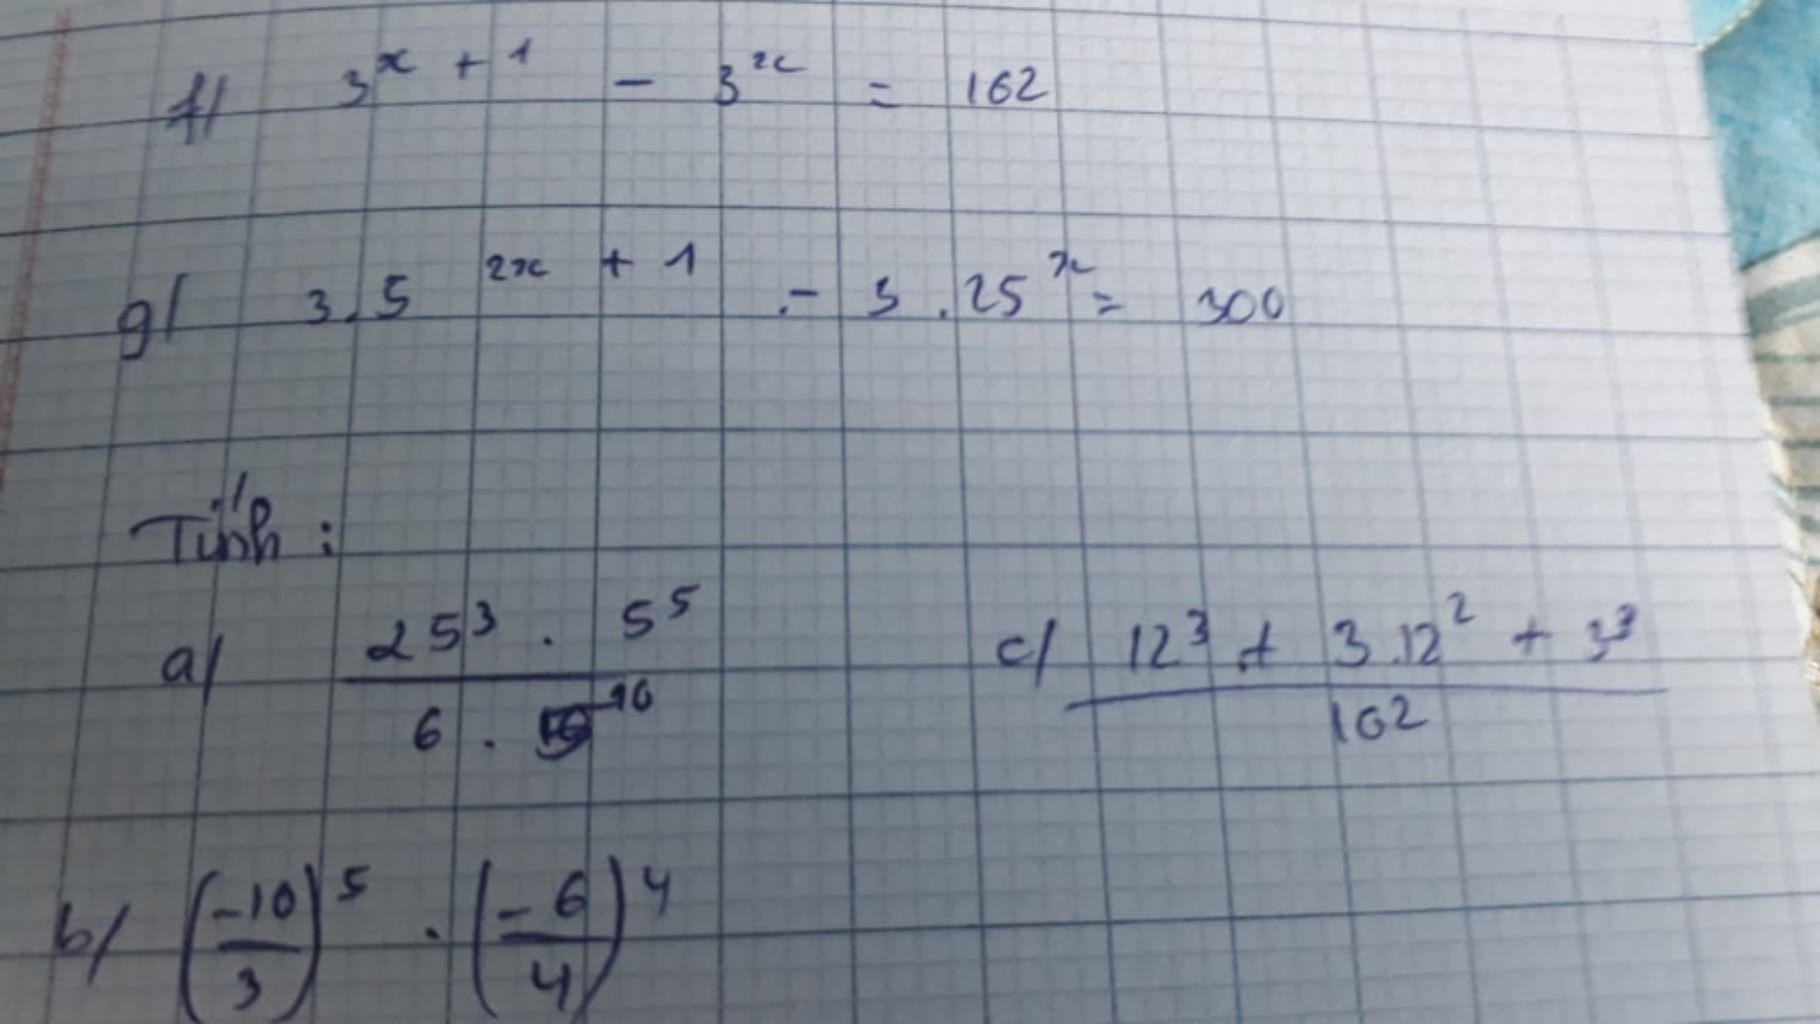 f/ 3^x + 1 - 3^x = 162
g/ 3.5^2x + 1 .- 3.25^x = 300
Tính :
a/ 25^3 . 5^5 / 6 . ^10
c/ 12^3 + 3.12^2 + 3^3 / 162
b/ (-10/3)^5 . (-6/4)^4